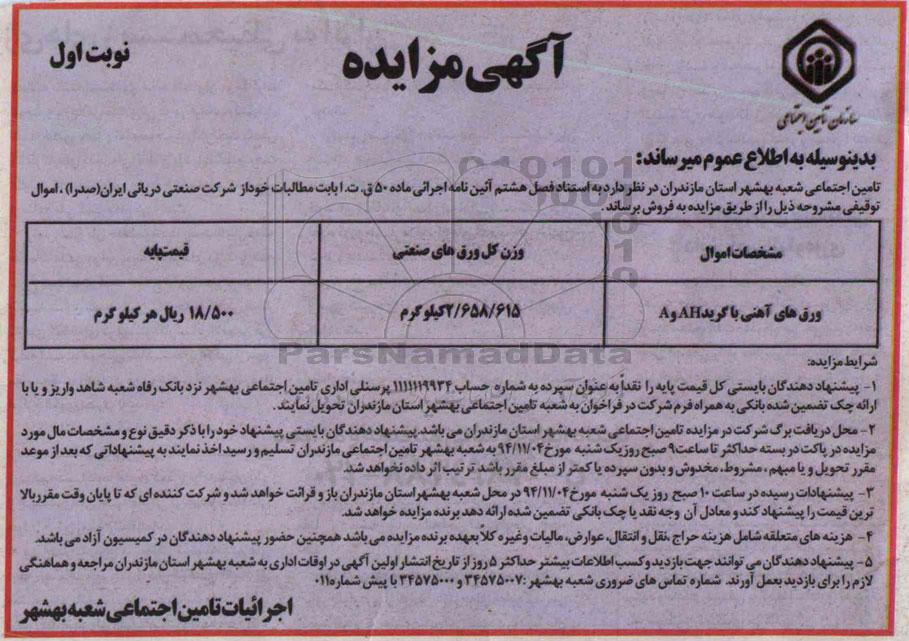 نوبت اول
آگهی مزایده
سازمان تامین اجتماعی
بدینوسیله به اطلاع عموم میرساند:
تامین اجتماعی شعبه بهشهر استان مازندران در نظر دارد به استناد فصل هشتم آئین نامه اجرائی ماده ۵۰ ق. ت. ا بابت مطالبات خود از شرکت صنعتی دریائی ایران (صدرا) ، اموال
توقیفی مشروحه ذیل را از طریق مزایده به فروش برساند.
مشخصات اموال وزن کل ورق های صنعتی قیمت پایه
ورق های آهنی با گرید AH و A ۲/۶۵۸/۶۱۵ کیلوگرم ۱۸/۵۰۰ ریال هر کیلو گرم
ParsNamadData
شرایط مزایده:
۱- پیشنهاد دهندگان بایستی کل قیمت پایه را نقداً به عنوان سپرده به شماره حساب ۱۱۱۱۱۱۹۹۳۴ پرسنلی اداری تامین اجتماعی بهشهر نزد بانک رفاه شعبه شاهد واریز و یا با
ارائه چک تضمین شده بانکی به همراه فرم شرکت در فراخوان به شعبه تامین اجتماعی بهشهر استان مازندران تحویل نمایند.
۲- محل دریافت برگ شرکت در مزایده تامین اجتماعی شعبه بهشهر استان مازندران می باشد. پیشنهاد دهندگان بایستی پیشنهاد خود را با ذکر دقیق نوع و مشخصات مال مورد
مزایده در پاکت در بسته حداکثر تا ساعت ۹ صبح روز یک شنبه مورخ ۹۴/۱۱/۰۴ به شعبه بهشهر تامین اجتماعی مازندران تسلیم و رسید اخذ نمایند به پیشنهاداتی که بعد از موعد
مقرر تحویل و یا مبهم ، مشروط، مخدوش و بدون سپرده یا کمتر از مبلغ مقرر باشد ترتیب اثر داده نخواهد شد.
۳- پیشنهادات رسیده در ساعت ۱۰ صبح روز یک شنبه مورخ ۹۴/۱۱/۰۴ در محل شعبه بهشهر استان مازندران باز و قرائت خواهد شد و شرکت کننده ای که تا پایان وقت مقرر بالا
ترین قیمت را پیشنهاد کند و معادل آن وجه نقد یا چک بانکی تضمین شده ارائه دهد برنده مزایده خواهد شد.
۴- هزینه های متعلقه شامل هزینه حراج ،نقل و انتقال، عوارض، مالیات و غیره کلاً بعهده برنده مزایده می باشد همچنین حضور پیشنهاد دهندگان در کمیسیون آزاد می باشد.
۵- پیشنهاد دهندگان می توانند جهت بازدید و کسب اطلاعات بیشتر حداکثر ۵ روز از تاریخ انتشار اولین آگهی در اوقات اداری به شعبه بهشهر استان مازندران مراجعه و هماهنگی
لازم را برای بازدید بعمل آورند. شماره تماس های ضروری شعبه بهشهر :۳۴۵۷۵۰۰۷ و ۳۴۵۷۵۰۰۰ با پیش شماره ۰۱۱
اجرائیات تامین اجتماعی شعبه بهشهر